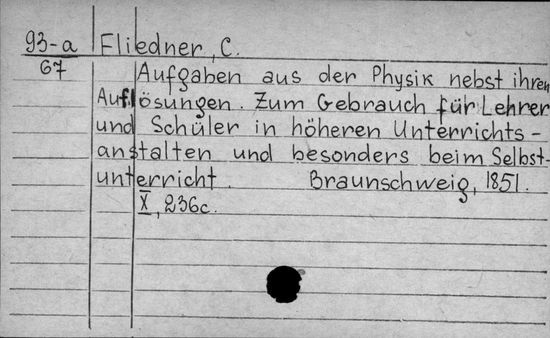 93-a Fliedner, C.
67
Aufgaben aus der Physik nebst ihren
Auflösungen. Zum Gebrauch für Lehrer
und Schüler in höheren Unterrichts-
anstalten und besonders beim Selbst-
unterricht. Braunschweig, 1851.
X, 236c.